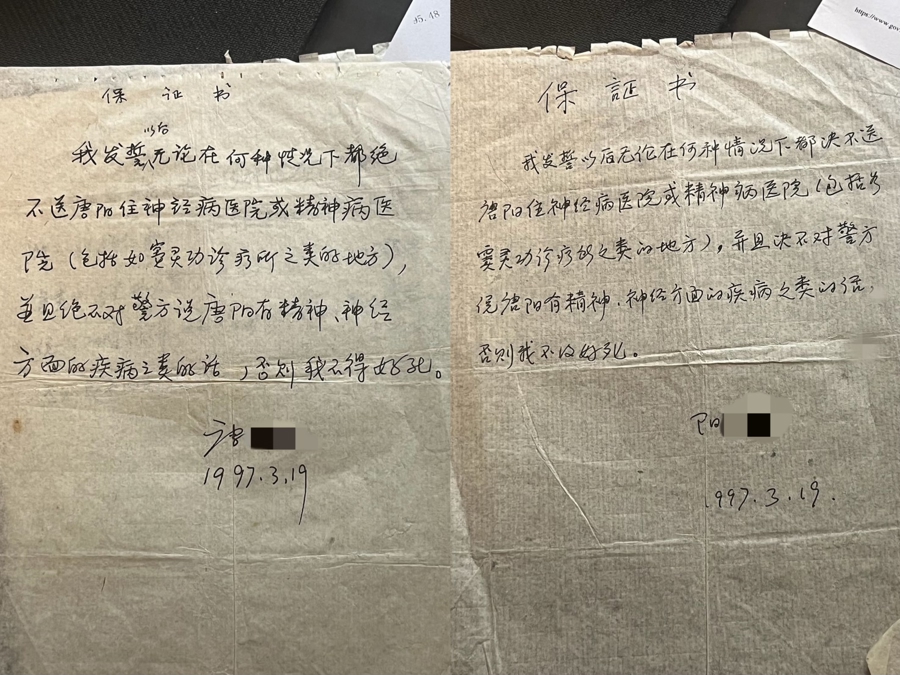 05.48
保 证 书
以后
我发誓无论在何种情况下都绝
不送唐阳住神经病医院或精神病医
院（包括如窦灵功诊疗所之类的地方），
并且绝不对警方说唐阳有精神、神经
方面的疾病之类的话，否则我不得好死。
唐
1997.3.19
https://www.gov
保 証 书
我发誓以后无论在何种情况下都决不送
唐阳住神经病医院或精神病医院（包括
窦灵功诊疗所之类的地方），并且决不对警方
说唐阳有精神、神经方面的疾病之类的话，
否则我不得好死。
阳
1997.3.19.